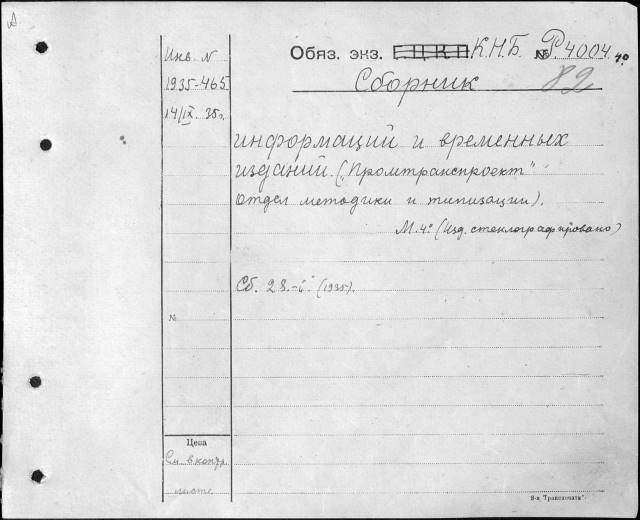 Инв. N
1935-465
14/IX 35г.
Обяз. экз. Г.Ц.К.П К.Н.Б. № Р.4004.40
Сборник 82
информаций и временных
изданий. („Промтранспроект"
Отдел методики и типизации).
М. 4° (Изд. стеклографировано)
Сб. 28.-й (1935).
№
Цена
См. в контр.
листе
8-я „Транспечати"